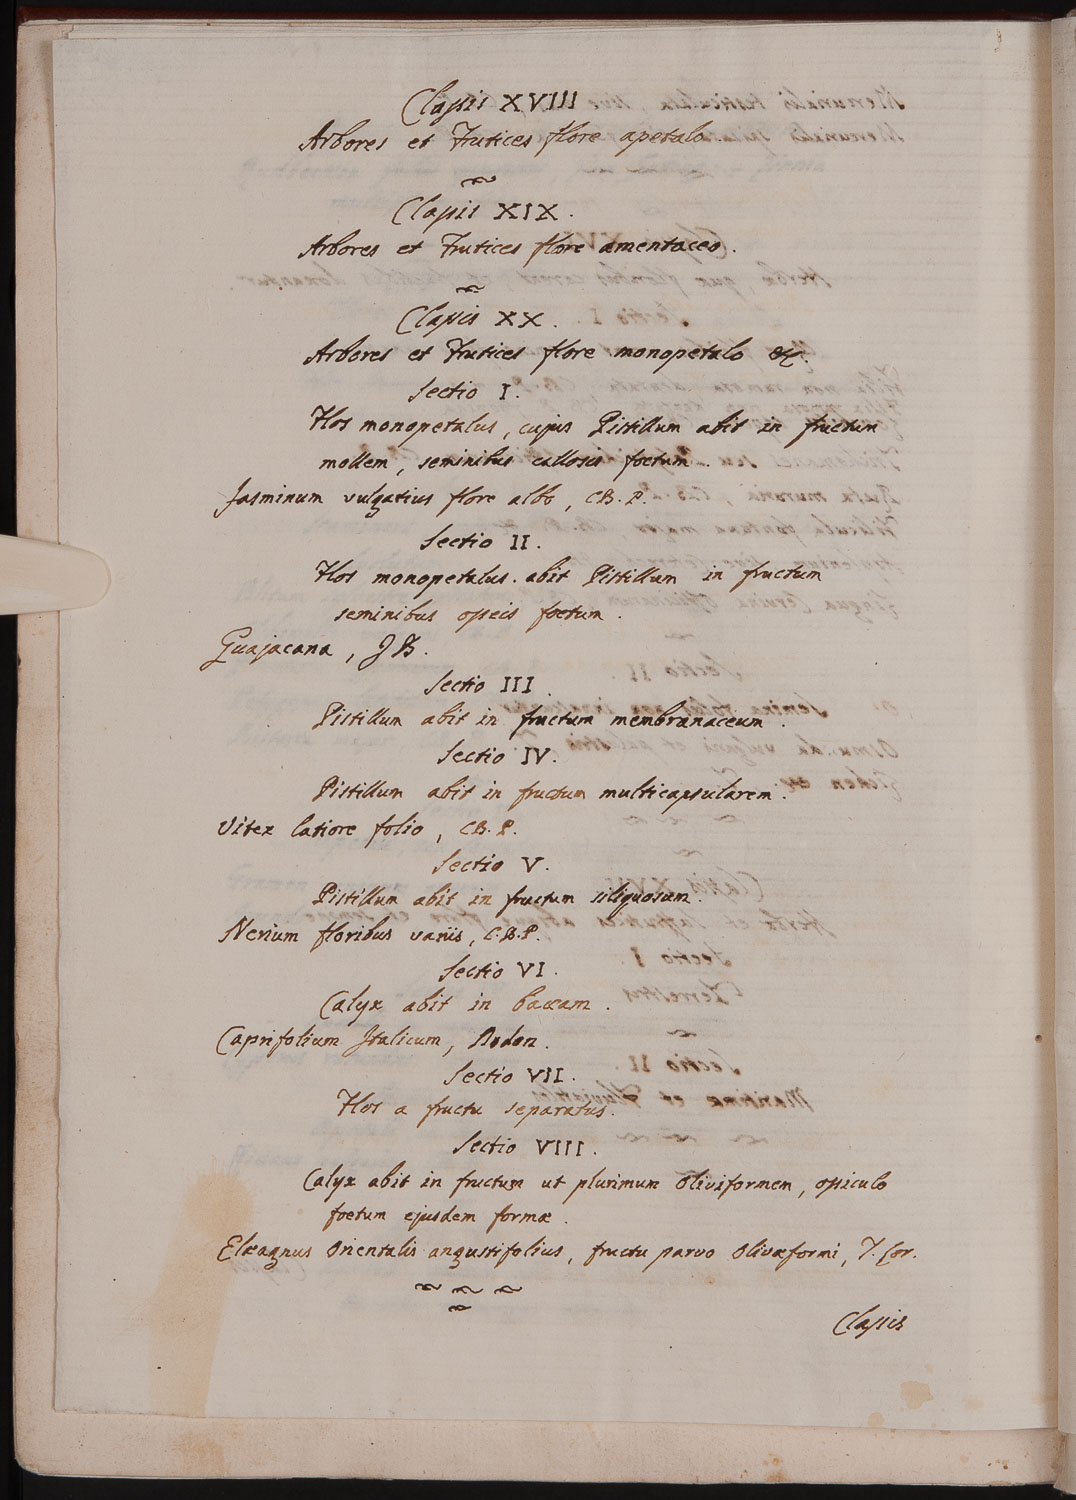 Classis XVIII
Arbores et Frutices flore apetalo.
Classis XIX.
Arbores et Frutices flore amentaceo.
Classis XX.
Arbores et Frutices flore monopetalo &c.
Sectio I.
Flos monopetalus, cujus Pistillum abit in fructum
mollem, seminibus callosis foetum.
Jasminum vulgatius flore albo, CB. P.
Sectio II.
Flos monopetalus. abit Pistillum in fructum
seminibus osseis foetum.
Guajacana, J B.
Sectio III.
Pistillum abit in fructum membranaceum.
Sectio IV.
Pistillum abit in fructum multicapsularem.
Vitex latiore folio, CB. P.
Sectio V.
Pistillum abit in fructum siliquosum.
Nerium floribus variis, C.B.P.
Sectio VI.
Calyx abit in baccam.
Caprifolium Italicum, Dodon.
Sectio VII.
Flos a fructu separatus.
Sectio VIII.
Calyx abit in fructum ut plurimum oliviformem, ossiculo
foetum ejusdem formæ.
Elæagnus Orientalis angustifolius, fructu parvo olivæformi, T. Cor.
Classis